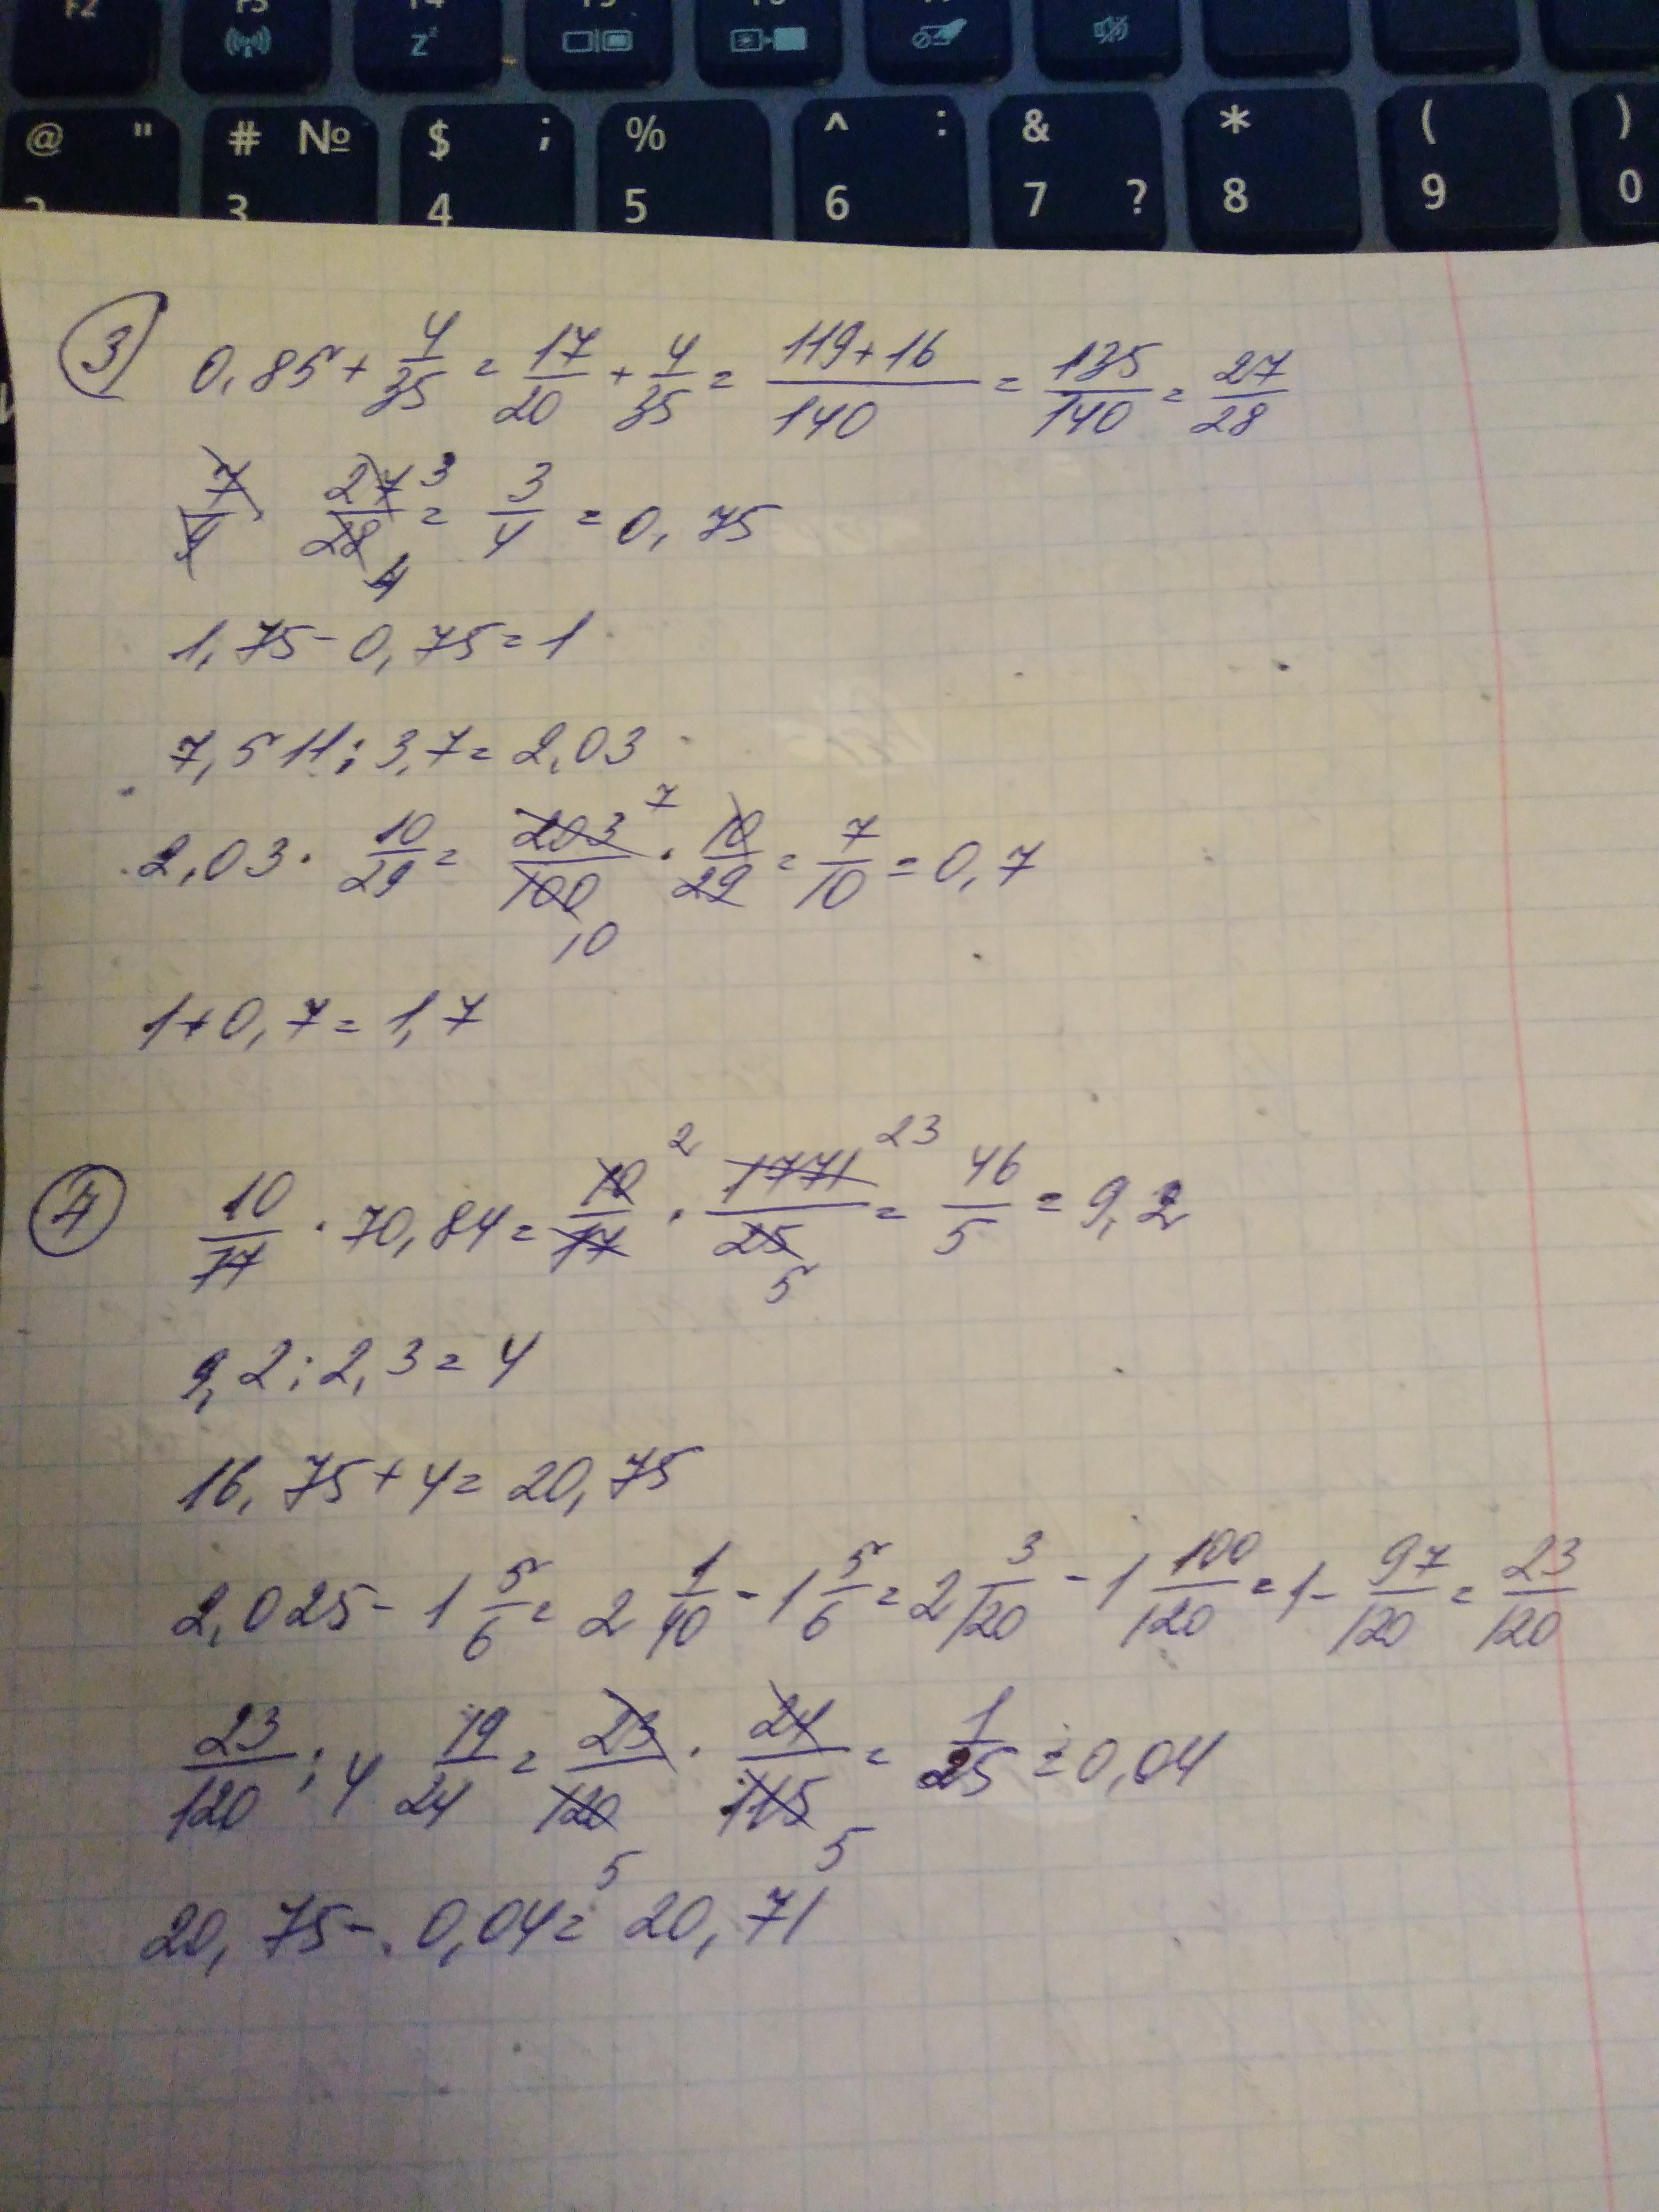 F2 F3 F4 F5 F6
z^z
@ " # № $ ; % ^ : & * ( )
3 4 5 6 7 ? 8 9 0
③ 0,85 + 4/35 = 17/20 + 4/35 = (119+16)/140 = 135/140 = 27/28
7/4 27/28 3 4 = 3/4 = 0,75
1,75 - 0,75 = 1
7,511 : 3,7 = 2,03
2,03 · 10/29 = 203/100 7 10 · 10/29 = 7/10 = 0,7
1 + 0,7 = 1,7
④ 10/77 · 70,84 = 10/77 2 · 1771/25 23 5 = 46/5 = 9,2
9,2 : 2,3 = 4
16,75 + 4 = 20,75
2,025 - 1 5/6 = 2 1/40 - 1 5/6 = 2 3/120 - 1 100/120 = 1 - 97/120 = 23/120
23/120 : 4 19/24 = 23/120 5 · 24/115 5 = 1/25 = 0,04
20,75 - 0,04 = 20,71